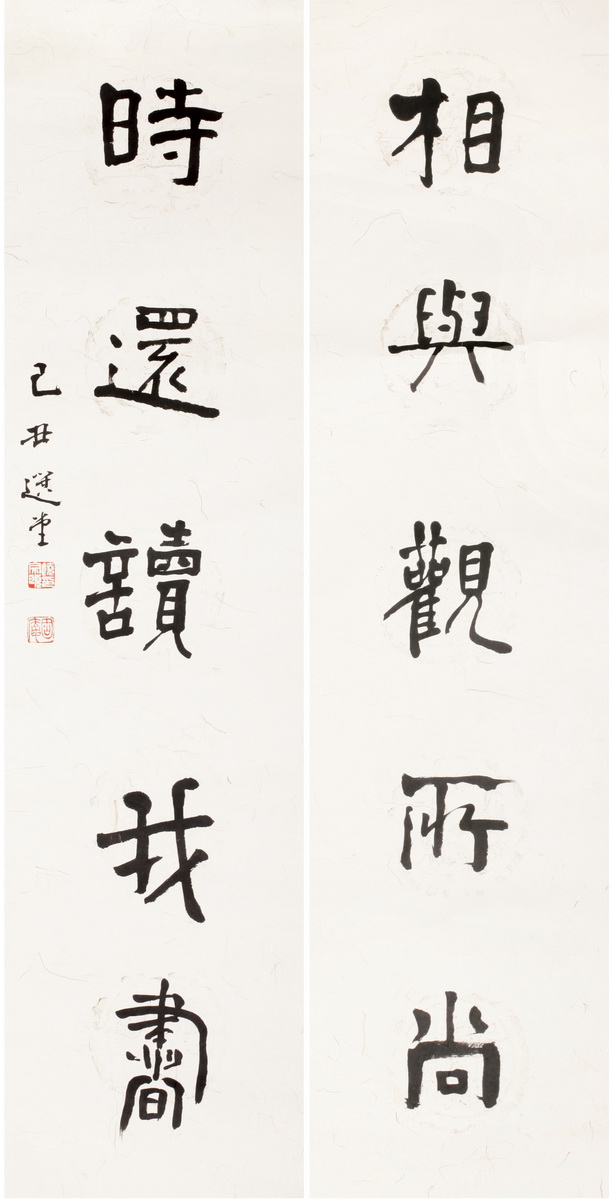 相與觀所尚
時還讀我書
己丑選堂